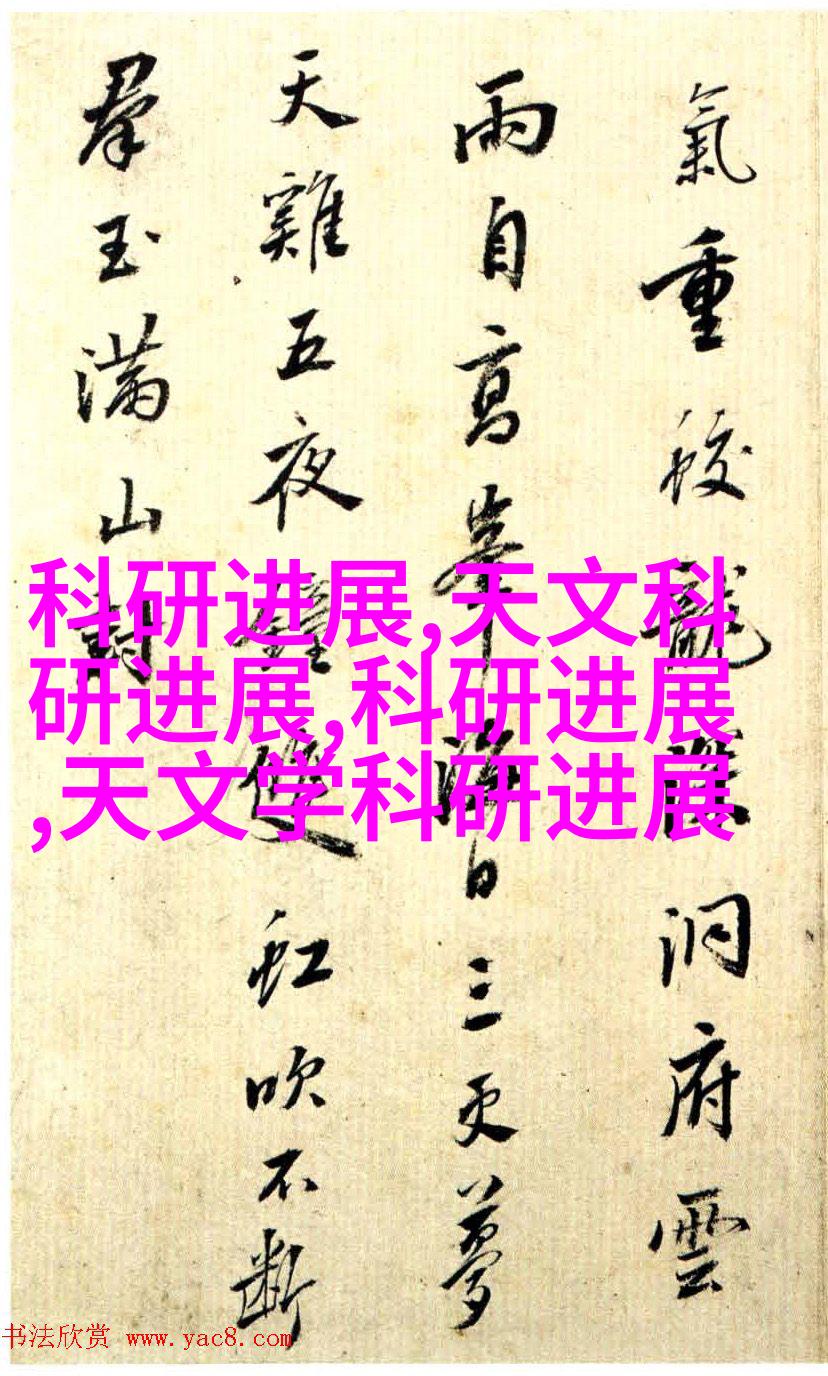 氣重蛟龍深洞府雲
雨自高峯海日三更夢
天雞五夜鐘雙虹吹不斷
羣玉滿山封
科研进展,天文科
研进展,科研进展
,天文学科研进展
书法欣赏 www.yac8.com